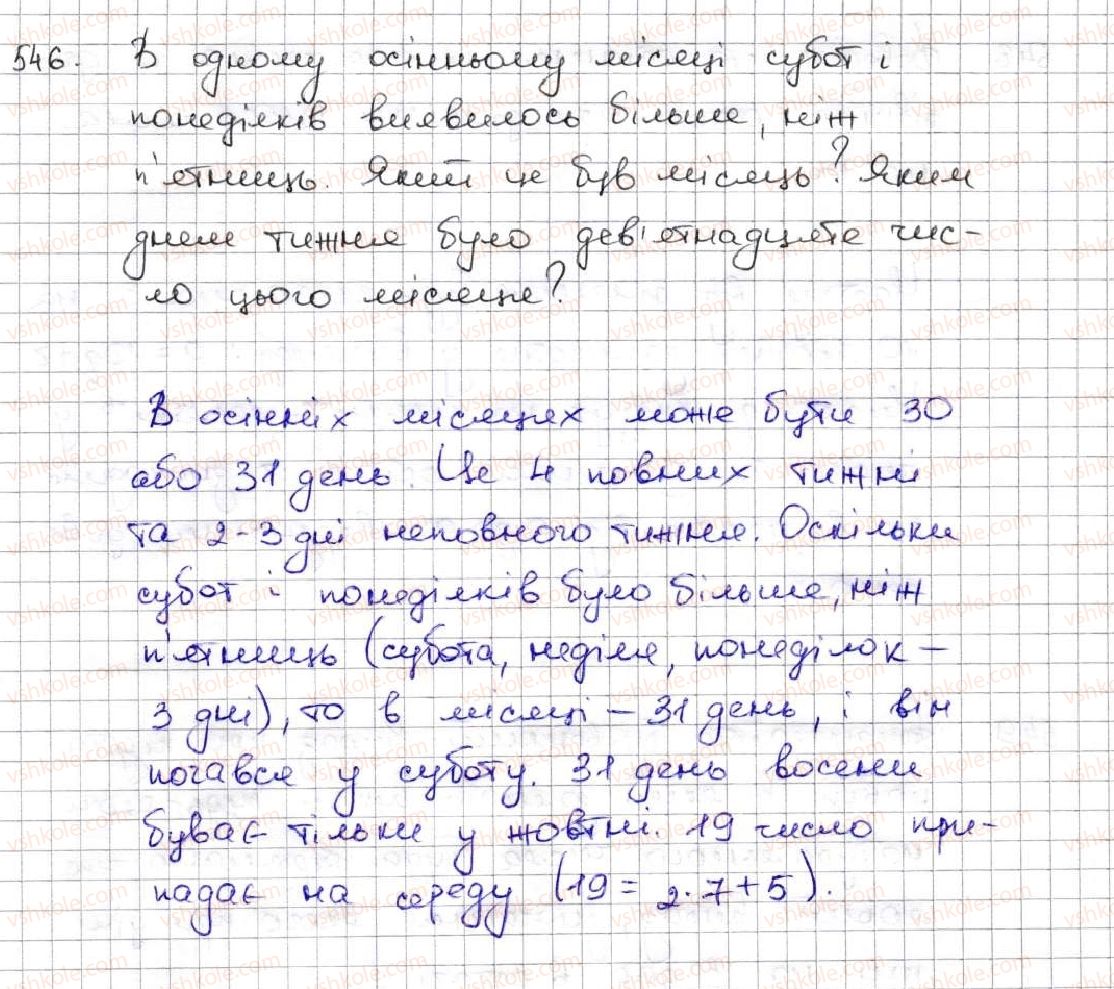 546. В одному осінньому місяці субот і
понеділків виявилось більше, ніж
п'ятниць. Який це був місяць? Яким
днем тижня було дев'ятнадцяте чис-
ло цього місяця?
В осінніх місяцях може бути 30
або 31 день. Це 4 повних тижні
та 2-3 дні неповного тижня. Оскільки
субот і понеділків було більше, ніж
п'ятниць (субота, неділя, понеділок –
3 дні), то в місяці – 31 день, і він
почався у суботу. 31 день восени
буває тільки у жовтні. 19 число при-
падає на середу (19 = 2·7+5).